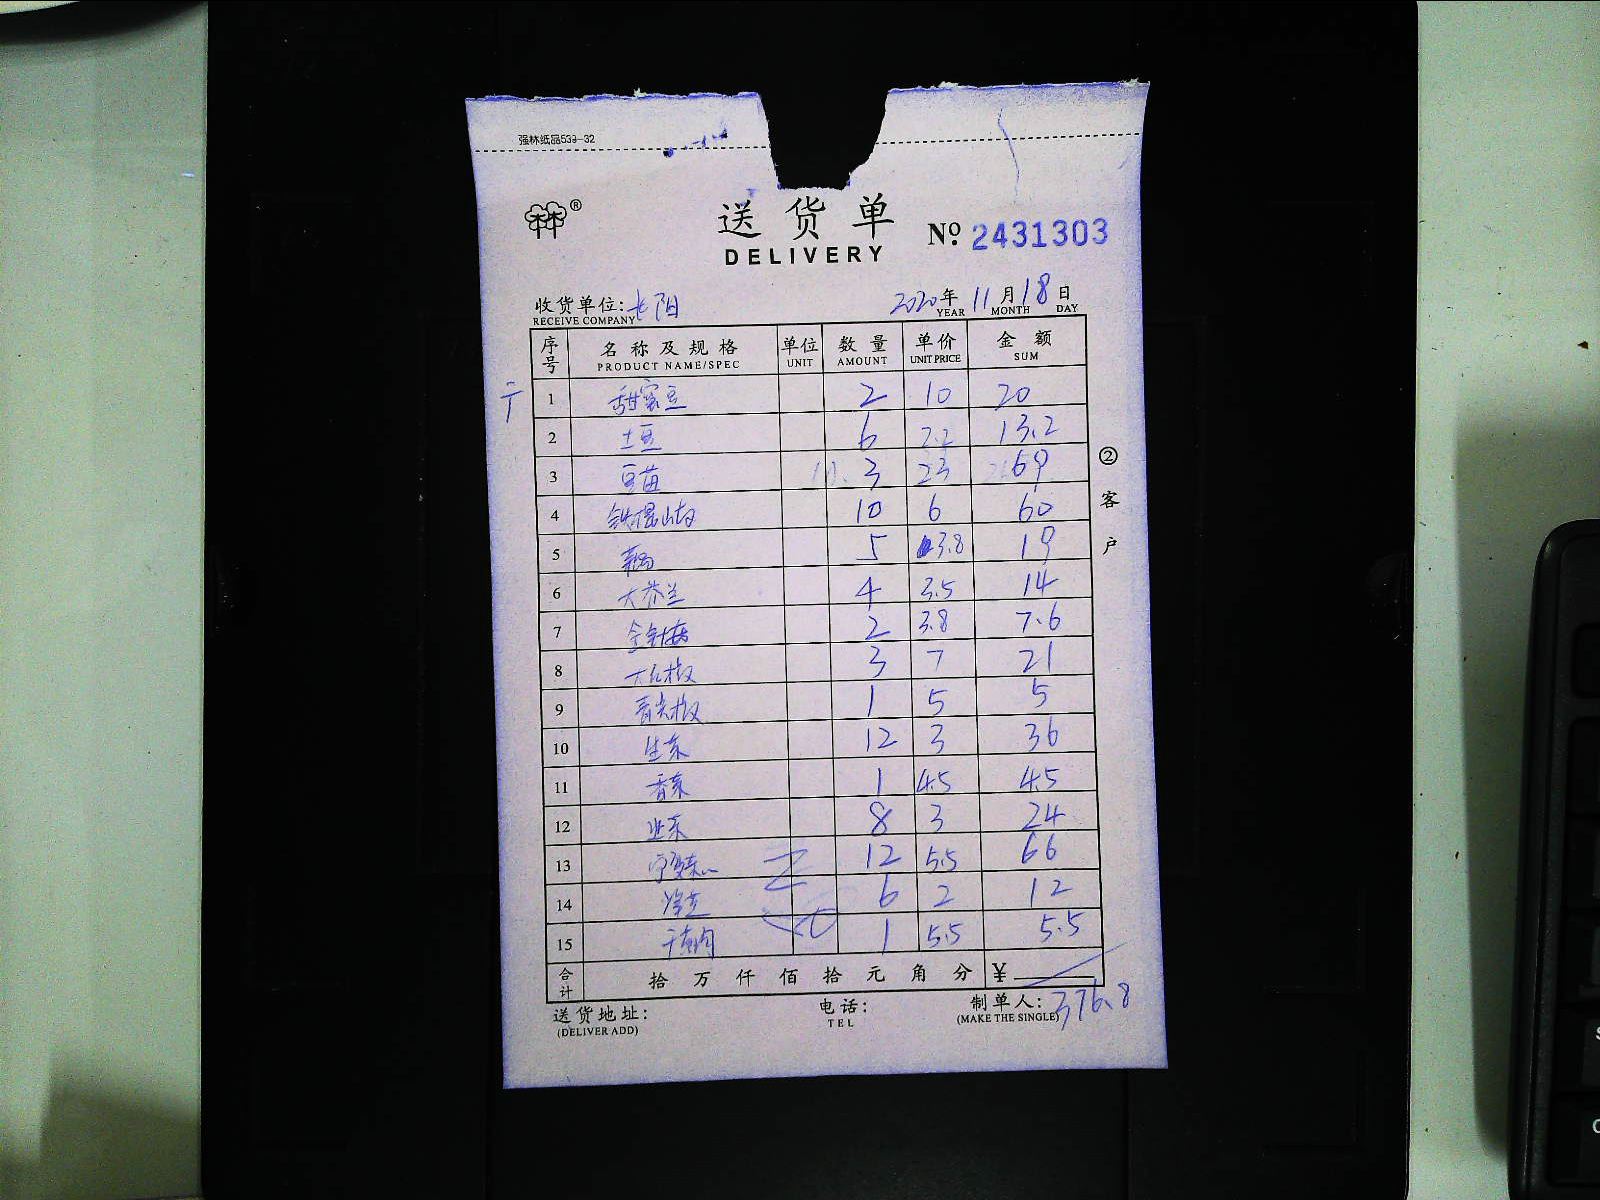 强林纸品532-32
®
送货单
DELIVERY
№ 2431303
收货单位:长阳 2020年11月18日
RECEIVE COMPANY YEAR MONTH DAY
序号 名称及规格 单位 数量 单价 金额
PRODUCT NAME/SPEC UNIT AMOUNT UNIT PRICE SUM
1 甜蜜豆 2 10 20
2 土豆 6 2.2 13.2
3 豆苗 3 23 69
4 铁棍山药 10 6 60
5 藕 5 3.8 19
6 大芥兰 4 3.5 14
7 金针菇 2 3.8 7.6
8 大红椒 3 7 21
9 青尖椒 1 5 5
10 生菜 12 3 36
11 香菜 1 4.5 4.5
12 8 3 24
13 12 5.5 66
14 6 2 12
15 1 5.5 5.5
合计 拾万仟佰拾元角分 ¥
376.8
送货地址: 电话: 制单人:
(DELIVER ADD) TEL (MAKE THE SINGLE)
②客户